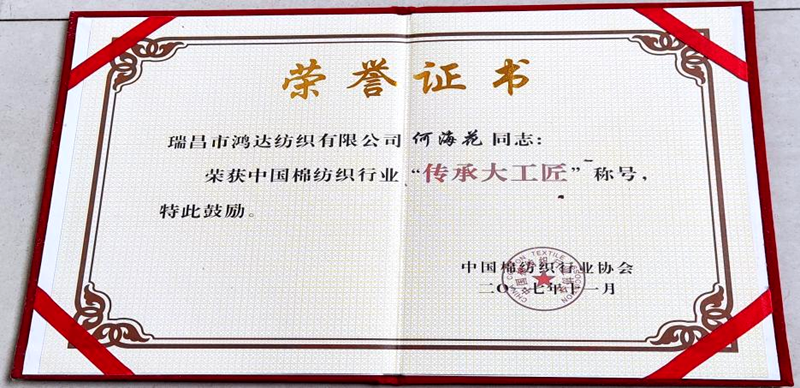 荣誉证书
瑞昌市鸿达纺织有限公司何海花同志：
荣获中国棉纺织行业“传承大工匠”称号，
特此鼓励。
中国棉纺织行业协会
二〇一七年十一月
CHINA COTTON TEXTILE ASSOCIATION